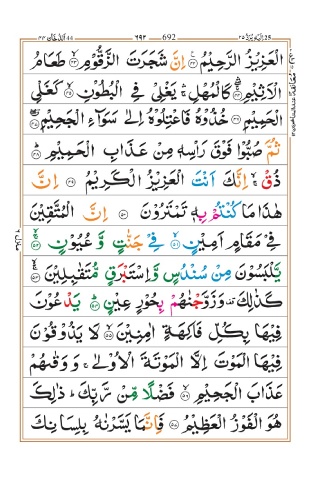 الْعَزِيْزُ الرَّحِيْمُ ۝۴۲ اِنَّ شَجَرَتَ الزَّقُّوْمِ ۝۴۳ طَعَامُ
الْاَثِيْمِ ۝۴۴ كَالْمُهْلِ ۛۚ يَغْلِيْ فِي الْبُطُوْنِ ۝۴۵ كَغَلْيِ
الْحَمِيْمِ ۝۴۶ خُذُوْهُ فَاعْتِلُوْهُ اِلٰى سَوَآءِ الْجَحِيْمِ ۝۴۷
ثُمَّ صُبُّوْا فَوْقَ رَاْسِهٖ مِنْ عَذَابِ الْحَمِيْمِ ۝۴۸
ذُقْ ۙۚ اِنَّكَ اَنْتَ الْعَزِيْزُ الْكَرِيْمُ ۝۴۹ اِنَّ
هٰذَا مَا كُنْتُمْ بِهٖ تَمْتَرُوْنَ ۝۵۰ اِنَّ الْمُتَّقِيْنَ
فِيْ مَقَامٍ اَمِيْنٍ ۝۵۱ فِيْ جَنّٰتٍ وَّ عُيُوْنٍ ۝۵۲
يَّلْبَسُوْنَ مِنْ سُنْدُسٍ وَّ اِسْتَبْرَقٍ مُّتَقٰبِلِيْنَ ۝۵۳
كَذٰلِكَ ۟ وَ زَوَّجْنٰهُمْ بِحُوْرٍ عِيْنٍ ۝۵۴ يَدْعُوْنَ
فِيْهَا بِكُلِّ فَاكِهَةٍ اٰمِنِيْنَ ۝۵۵ لَا يَذُوْقُوْنَ
فِيْهَا الْمَوْتَ اِلَّا الْمَوْتَةَ الْاُوْلٰى ۚ وَ وَقٰىهُمْ
عَذَابَ الْجَحِيْمِ ۝۵۶ فَضْلًا مِّنْ رَّبِّكَ ؕ ذٰلِكَ
هُوَ الْفَوْزُ الْعَظِيْمُ ۝۵۷ فَاِنَّمَا يَسَّرْنٰهُ بِلِسَانِكَ
692